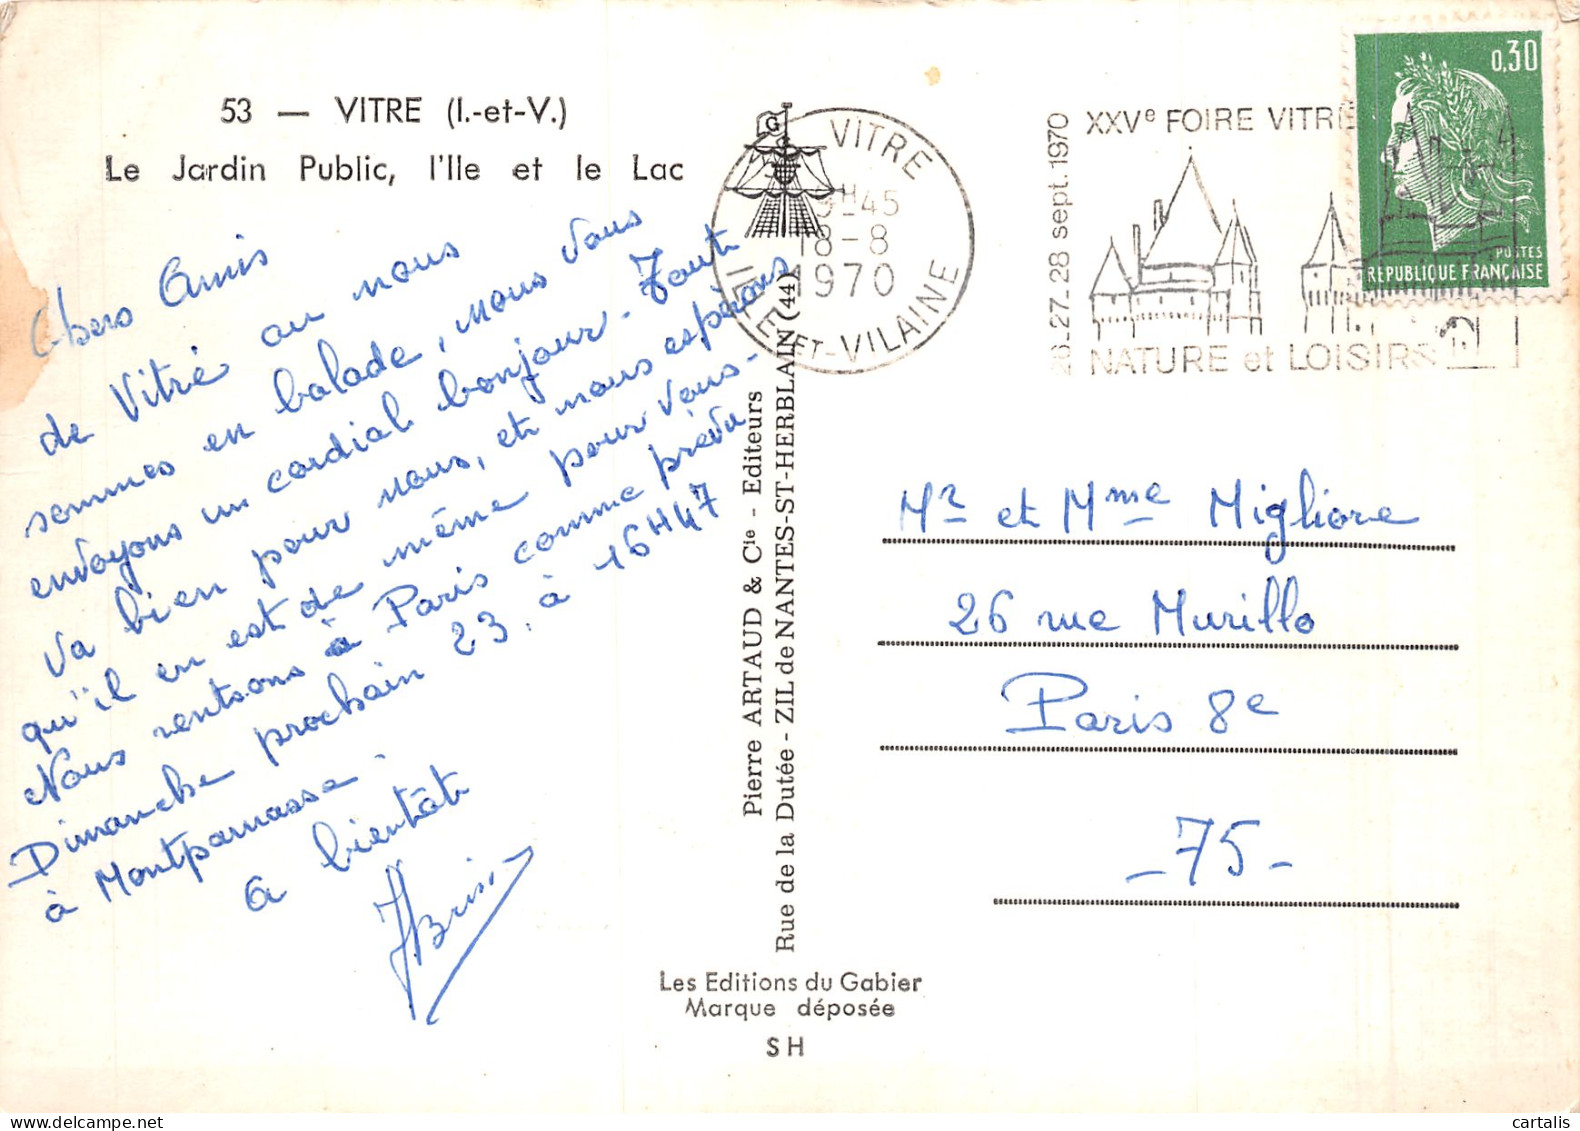 53 — VITRE (I.-et-V.)
Le Jardin Public, l'Ile et le Lac
Chers Amis
de Vitré où nous
sommes en balade, nous vous
envoyons un cordial bonjour - Tout
va bien pour nous, et nous espérons
qu'il en est de même pour vous -
Nous rentrons à Paris comme prévu
Dimanche prochain 23. à 16H47
à Montparnasse.
A bientôt
Pierre ARTAUD & Cie - Editeurs
Rue de la Dutée - ZIL de NANTES-ST-HERBLAIN (44)
Les Editions du Gabier
Marque déposée
SH
G
VITRE
45
18-8
1970
ILLE-ET-VILAINE
27-28 sept. 1970
XXVe FOIRE VITRE
NATURE et LOISIRS
0,30
POSTES
REPUBLIQUE FRANÇAISE
Mr et Mme Migliore
26 rue Murillo
Paris 8e
- 75 -
cartalis